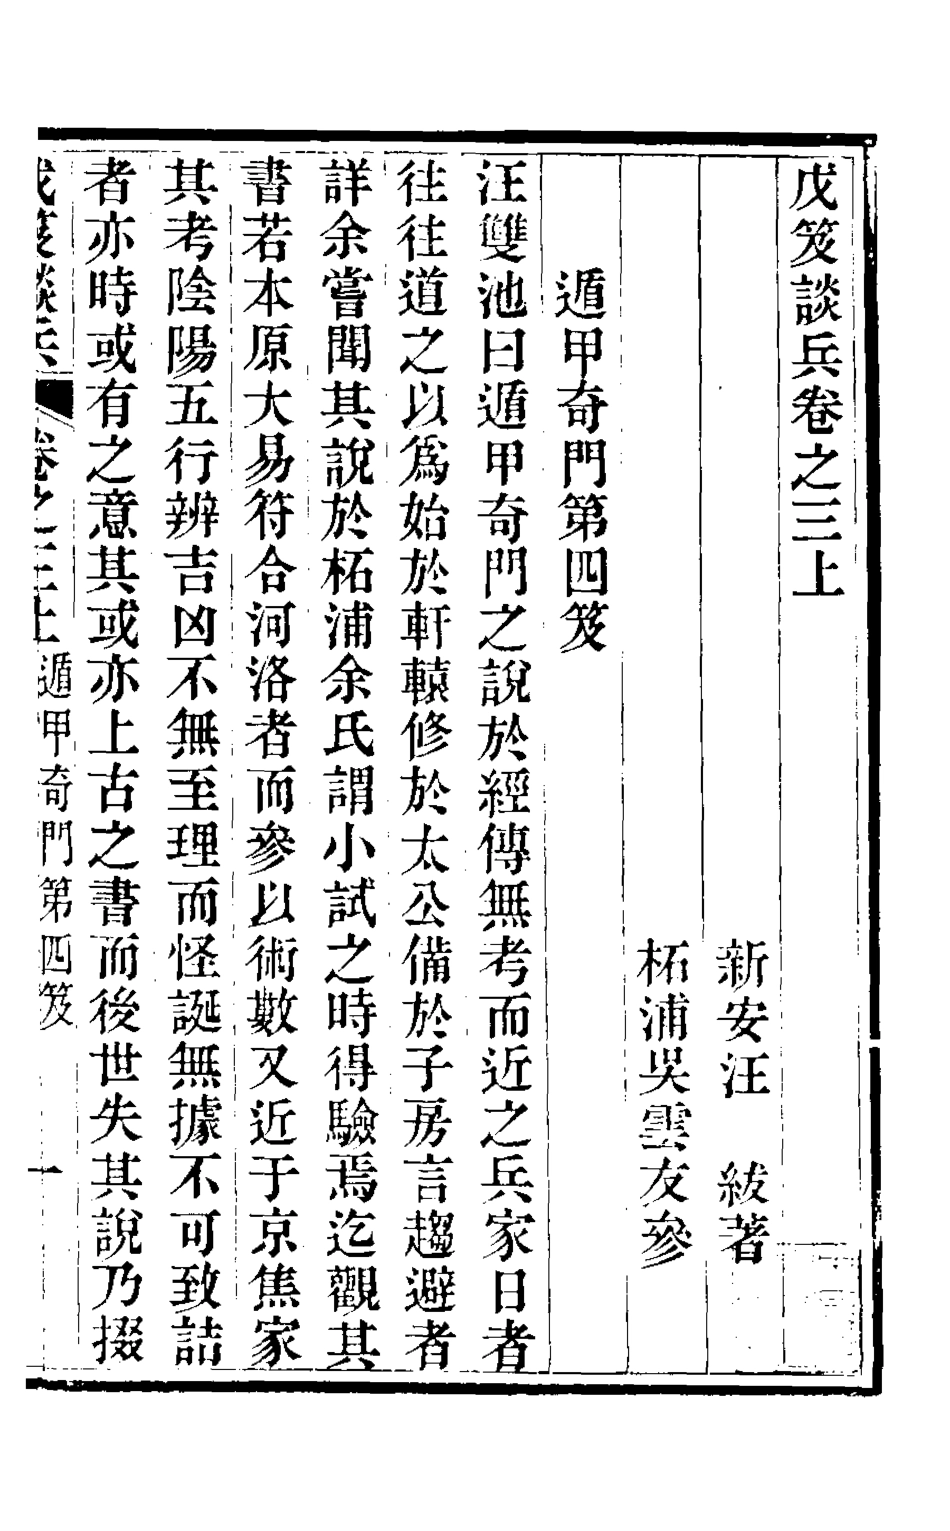 戊笈談兵卷之三上
新安汪 紱著
柘浦吳雲友參
遁甲奇門第四笈
汪雙池曰遁甲奇門之說於經傳無考而近之兵家日者
往往道之以爲始於軒轅修於太公備於子房言趨避者
詳余嘗聞其說於柘浦余氏謂小試之時得驗焉迄觀其
書若本原大易符合河洛者而參以術數又近于京焦家
其考陰陽五行辨吉凶不無至理而怪誕無據不可致詰
者亦時或有之意其或亦上古之書而後世失其說乃掇
戊笈談兵 卷之三上 遁甲奇門第四笈 一